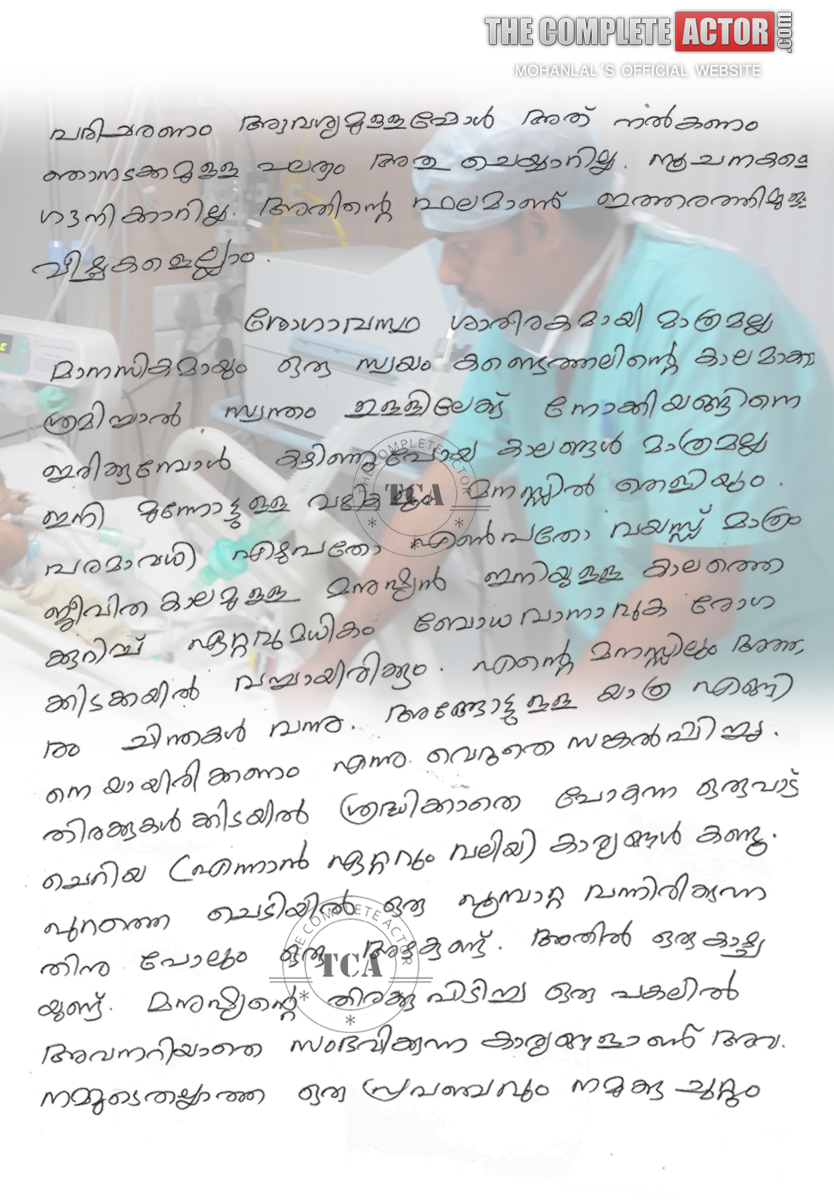 THE COMPLETE ACTOR.com
MOHANLAL'S OFFICIAL WEBSITE
പരിചരണം ആവശ്യമുള്ളപ്പോൾ അത് നൽകണം
ഞാനടക്കമുള്ള പലരും അതു ചെയ്യാറില്ല. സൂചനകളെ
ഗൗനിക്കാറില്ല. അതിന്റെ ഫലമാണ് ഇത്തരത്തിലുള്ള
വീഴ്ചകളെല്ലാം.
രോഗാവസ്ഥ ശാരീരകമായി മാത്രമല്ല
മാനസികമായും ഒരു സ്വയം കണ്ടെത്തലിന്റെ കാലമാക്കു
ശ്രമിച്ചാൽ സ്വന്തം ഉള്ളിലേക്ക് നോക്കിയങ്ങിനെ
ഇരിക്കുമ്പോൾ കഴിഞ്ഞുപോയ കാലങ്ങൾ മാത്രമല്ല
ഇനി മുന്നോട്ടുള്ള വഴികളും മനസ്സിൽ തെളിയും.
പരമാവധി എഴുപതോ എൺപതോ വയസ്സ് മാത്രം
ജീവിത കാലമുള്ള മനുഷ്യൻ ഇനിയുള്ള കാലത്തെ
ക്കുറിച്ച് ഏറ്റവുമധികം ബോധവാനാവുക രോഗ
ക്കിടക്കയിൽ വച്ചായിരിക്കും. എന്റെ മനസ്സിലും അത്ത
രം ചിന്തകൾ വന്നു. അങ്ങോട്ടുള്ള യാത്ര എങ്ങി
നെ യായിരിക്കണം എന്നു വെറുതെ സങ്കൽപ്പിച്ചു.
തിരക്കുകൾക്കിടയിൽ ശ്രദ്ധിക്കാതെ പോകുന്ന ഒരുപാട്
ചെറിയ (എന്നാൽ ഏറ്റവും വലിയ) കാര്യങ്ങൾ കണ്ടു.
പുറത്തെ ചെടിയിൽ ഒരു പൂമ്പാറ്റ വന്നിരിക്കുന്ന
തിനു പോലും ഒരു അഴകുണ്ട്. അതിൽ ഒരു കാഴ്ച
യുണ്ട്. മനുഷ്യന്റെ തിരക്കു പിടിച്ച ഒരു പകലിൽ
അവനറിയാതെ സംഭവിക്കുന്ന കാര്യങ്ങളാണ് അവ.
നമ്മുടെതല്ലാത്ത ഒരു പ്രവഞ്ചവും നമുക്കു ചുറ്റും
THE COMPLETE ACTOR
TCA
THE COMPLETE ACTOR
TCA